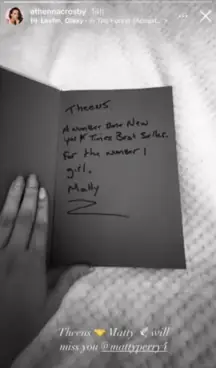 athennacrosby 14h
Theens
A number three New
York Times Best Seller.
For the number 1
girl.
Matty
Theens 🤝 Matty 🕊 will
miss you @mattyperry4